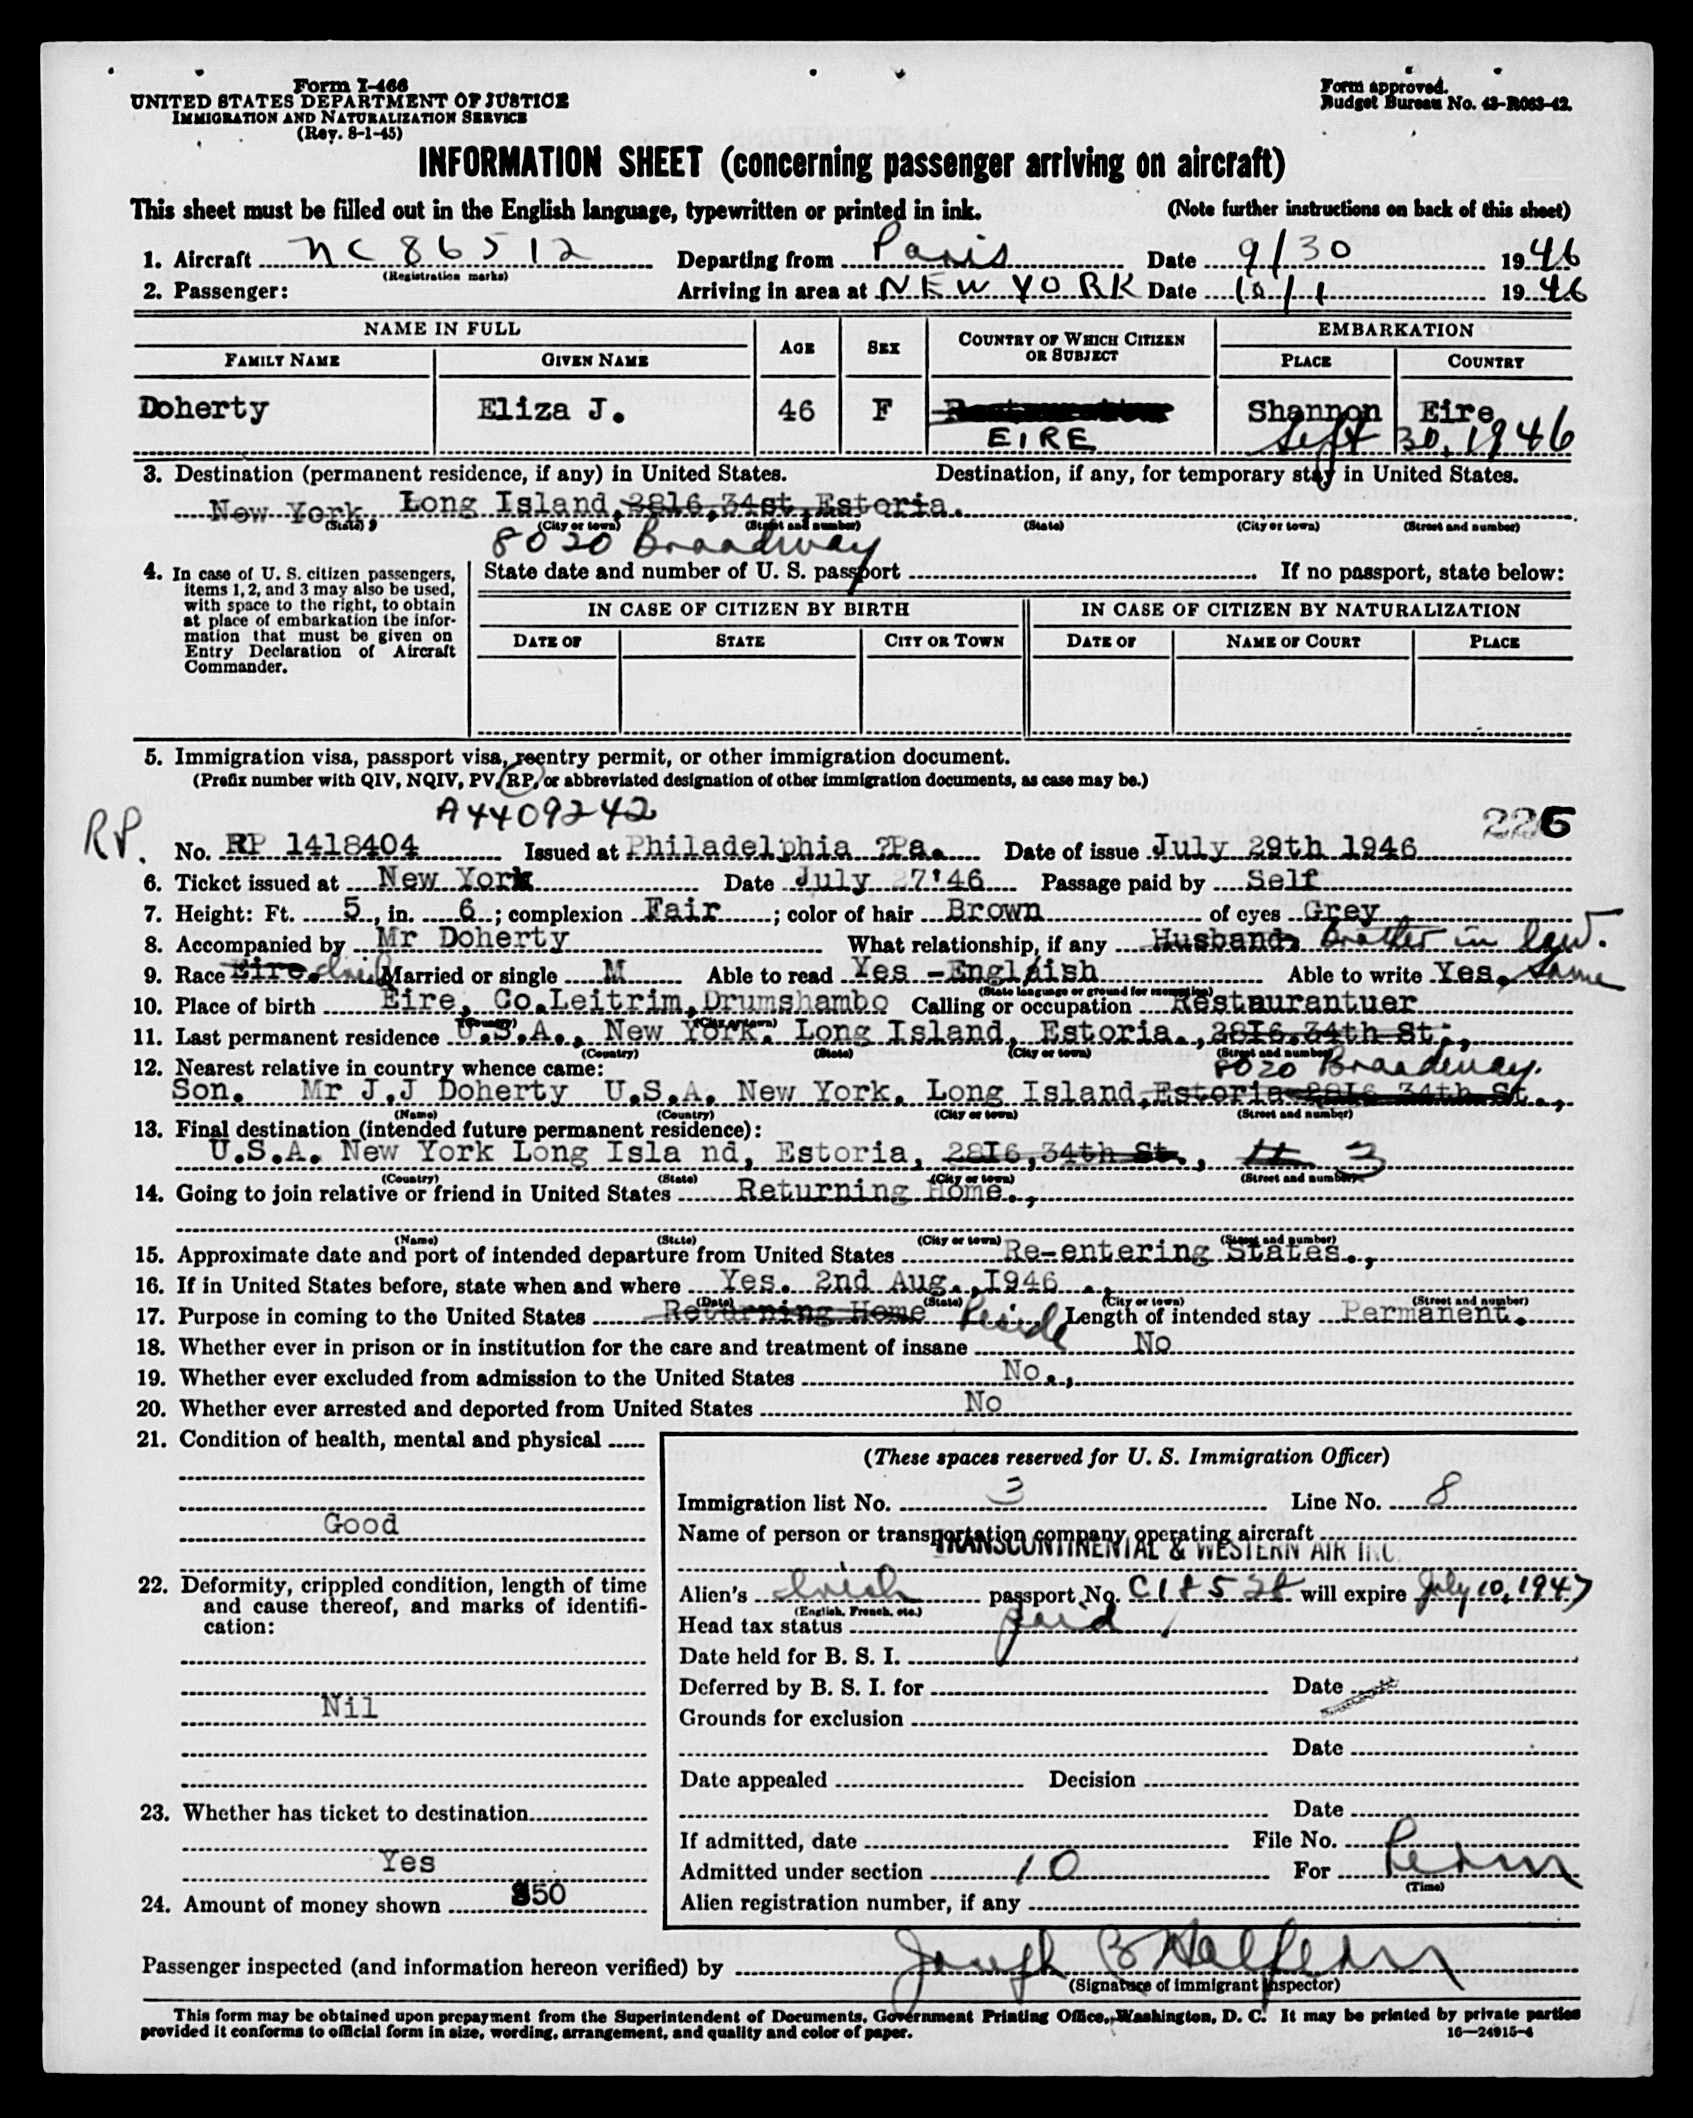 Form I-466
UNITED STATES DEPARTMENT OF JUSTICE
IMMIGRATION AND NATURALIZATION SERVICE
(Rev. 8-1-45)
Form approved.
Budget Bureau No. 43-R063-42.
INFORMATION SHEET (concerning passenger arriving on aircraft)
This sheet must be filled out in the English language, typewritten or printed in ink. (Note further instructions on back of this sheet)
1. Aircraft NC 86512 Departing from Paris Date 9/30 1946
(Registration marks)
2. Passenger: Arriving in area at NEW YORK Date 10/1 1946
NAME IN FULL AGE SEX COUNTRY OF WHICH CITIZEN OR SUBJECT EMBARKATION
FAMILY NAME GIVEN NAME PLACE COUNTRY
Doherty Eliza J. 46 F Shannon Eire
EIRE Sept 30, 1946
3. Destination (permanent residence, if any) in United States. Destination, if any, for temporary stay in United States.
New York, Long Island, 2816, 34st, Estoria.
(State) (City or town) (Street and number) (State) (City or town) (Street and number)
8020 Broadway
4. In case of U. S. citizen passengers, items 1, 2, and 3 may also be used, with space to the right, to obtain at place of embarkation the information that must be given on Entry Declaration of Aircraft Commander.
State date and number of U. S. passport If no passport, state below:
IN CASE OF CITIZEN BY BIRTH IN CASE OF CITIZEN BY NATURALIZATION
DATE OF STATE CITY OR TOWN DATE OF NAME OF COURT PLACE
5. Immigration visa, passport visa, reentry permit, or other immigration document.
(Prefix number with QIV, NQIV, PV, RP, or abbreviated designation of other immigration documents, as case may be.)
A4409242 226
RP. No. RP 1418404 Issued at Philadelphia ?Pa. Date of issue July 29th 1946
6. Ticket issued at New York Date July 27'46 Passage paid by Self
7. Height: Ft. 5, in. 6; complexion Fair; color of hair Brown of eyes Grey
8. Accompanied by Mr Doherty What relationship, if any Husband. Brother in law.
9. Race Eire. Irish Married or single M Able to read Yes - Englaish Able to write Yes, Same
(State language or ground for exemption)
10. Place of birth Eire, Co.Leitrim, Drumshambo Calling or occupation Restaurantuer
(Country) (City or town)
11. Last permanent residence U.S.A., New York. Long Island, Estoria., 28I6.34th St.,
(Country) (State) (City or town) (Street and number)
12. Nearest relative in country whence came: 8020 Broadway.
Son. Mr J.J Doherty U.S.A. New York. Long Island, Estoria 28I6 34th St.,
(Name) (Country) (City or town) (Street and number)
13. Final destination (intended future permanent residence):
U.S.A. New York Long Isla nd, Estoria, 28I6, 34th St., # 3
(Country) (State) (City or town) (Street and number)
14. Going to join relative or friend in United States Returning Home.,
(Name) (State) (City or town) (Street and number)
15. Approximate date and port of intended departure from United States Re-entering States.,
16. If in United States before, state when and where Yes. 2nd Aug., I946
(Date) (State) (City or town) (Street and number)
17. Purpose in coming to the United States Returning Home Reside Length of intended stay Permanent.
18. Whether ever in prison or in institution for the care and treatment of insane No
19. Whether ever excluded from admission to the United States No.,
20. Whether ever arrested and deported from United States No
21. Condition of health, mental and physical
Good
22. Deformity, crippled condition, length of time and cause thereof, and marks of identification:
Nil
23. Whether has ticket to destination
Yes
24. Amount of money shown $50
(These spaces reserved for U. S. Immigration Officer)
Immigration list No. 3 Line No. 8
Name of person or transportation company operating aircraft
TRANSCONTINENTAL & WESTERN AIR INC.
Alien's Irish passport No. C18528 will expire July 10, 1947
(English, French, etc.)
Head tax status paid
Date held for B. S. I.
Deferred by B. S. I. for Date
Grounds for exclusion
Date
Date appealed Decision
Date
If admitted, date File No.
Admitted under section 10 For Perm
(Time)
Alien registration number, if any
Passenger inspected (and information hereon verified) by Joseph B Halpern
(Signature of immigrant inspector)
This form may be obtained upon prepayment from the Superintendent of Documents, Government Printing Office, Washington, D. C. It may be printed by private parties
provided it conforms to official form in size, wording, arrangement, and quality and color of paper.
16—24915-4